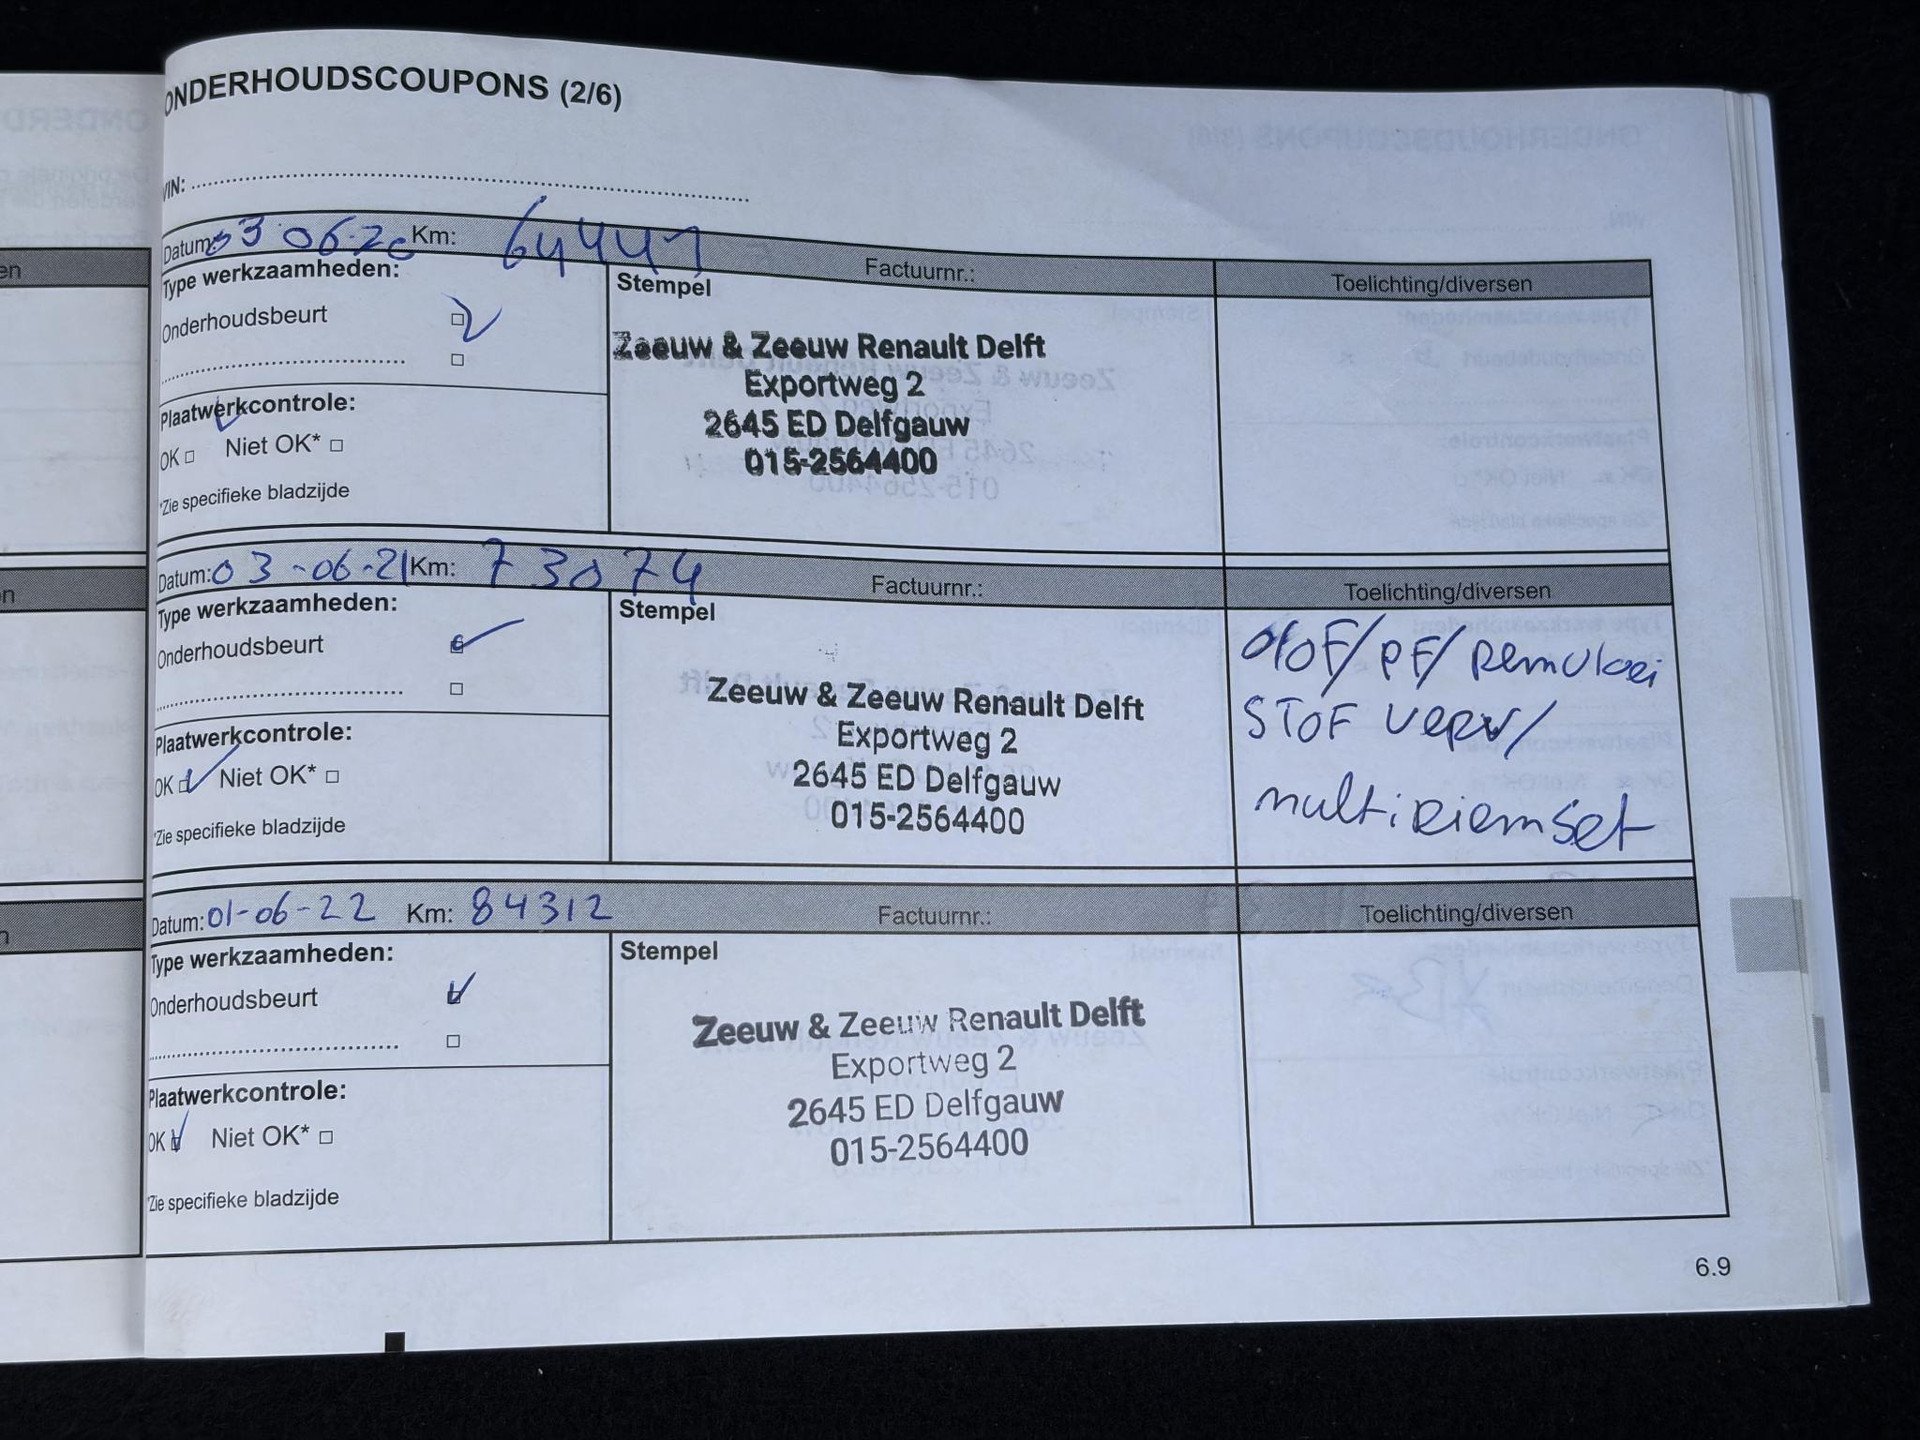 ONDERHOUDSCOUPONS (2/6)
VIN:
Datum: 03 06-20 Km: 64441 Factuurnr.: Toelichting/diversen
Type werkzaamheden: Stempel
Onderhoudsbeurt
Zeeuw & Zeeuw Renault Delft
Exportweg 2
2645 ED Delfgauw
015-2564400
Plaatwerkcontrole:
OK Niet OK*
*Zie specifieke bladzijde
Datum: 03-06-21 Km: 73074 Factuurnr.: Toelichting/diversen
Type werkzaamheden: Stempel
Onderhoudsbeurt
Zeeuw & Zeeuw Renault Delft
Exportweg 2
2645 ED Delfgauw
015-2564400
/PF/Remvloei
STOF verv/
multiriemset
Plaatwerkcontrole:
OK Niet OK*
*Zie specifieke bladzijde
Datum: 01-06-22 Km: 84312 Factuurnr.: Toelichting/diversen
Type werkzaamheden: Stempel
Onderhoudsbeurt
Zeeuw & Zeeuw Renault Delft
Exportweg 2
2645 ED Delfgauw
015-2564400
Plaatwerkcontrole:
OK Niet OK*
*Zie specifieke bladzijde
6.9